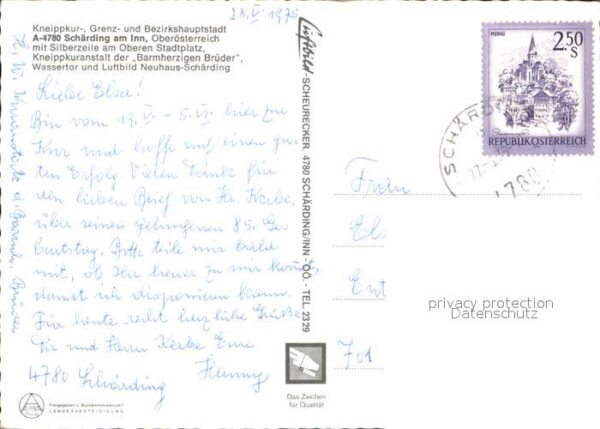 23.V.1975
Kneippkur-, Grenz- und Bezirkshauptstadt
A-4780 Schärding am Inn, Oberösterreich
mit Silberzeile am Oberen Stadtplatz,
Kneippkuranstalt der „Barmherzigen Brüder",
Wassertor und Luftbild Neuhaus-Schärding
Liebe Elsa!
Bin vom 19.V. - 5.VI. hier zur
Kur und hoffe auf einen gu-
ten Erfolg. Vielen Dank für
den lieben Brief von Hr. Kerbe,
über seinen gelungenen 85. Ge-
burtstag. Bitte teile mir bald
mit, ob Ihr heuer zu mir kommt,
damit ich disponieren kann.
Für heute recht herzliche Grüße
Dir und Herrn Kerbe Eure
4780 Schärding
d. Barmh. Brüder
Luftbild-SCHEURECKER, 4780 SCHÄRDING/INN - OÖ. - TEL. 2329
MURAU
2.50
S
REPUBLIK ÖSTERREICH
SCHÄRD
4780
Frau
El
Ent
privacy protection
Datenschutz
Das Zeichen
für Qualität
Freigegeben v. Bundesministerium f.
LANDESVERTEIDIGUNG